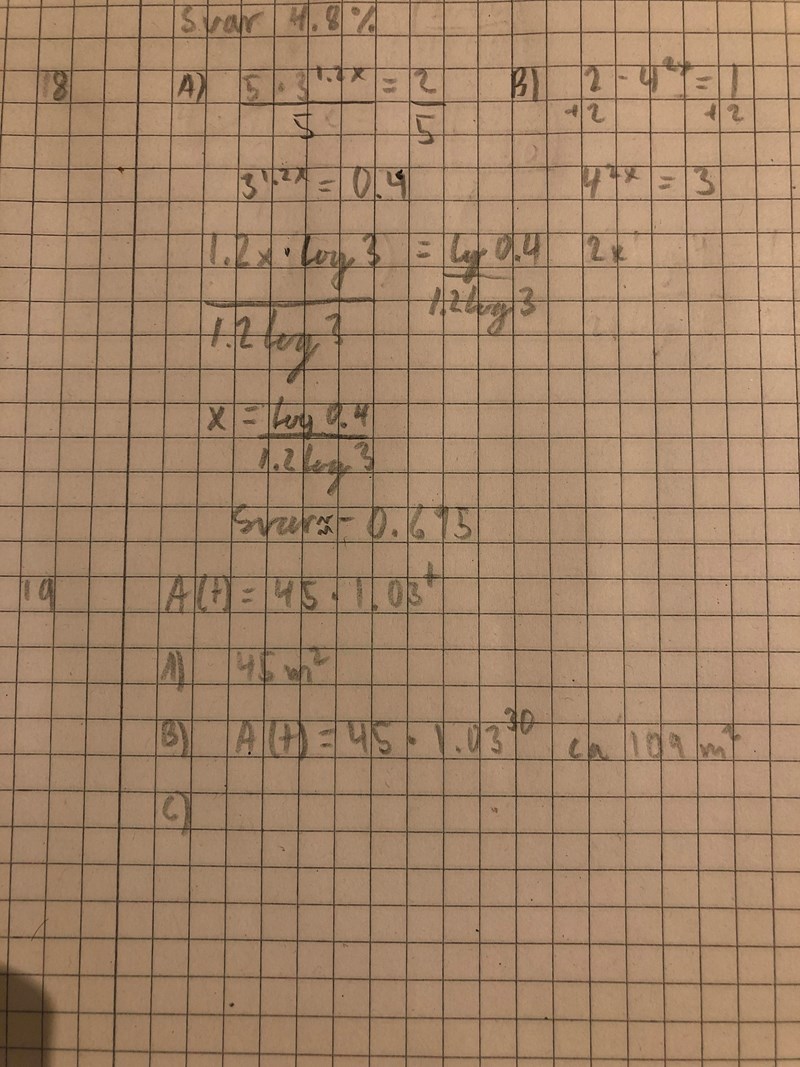 Svar 4.8%
18 A) 5 · 3^1.2x = 2 B) 2 - 4^2x = 1
5 5 +2 +2
3^1.2x = 0.4 4^2x = 3
1.2x · log 3 = lg 0.4 2x
1.2 log 3 1.2 log 3
x = log 0.4
1.2 log 3
Svar ≈ - 0.695
19 A(t) = 45 · 1.03^t
A) 45 m²
B) A(t) = 45 · 1.03^30 ca 109 m²
C)